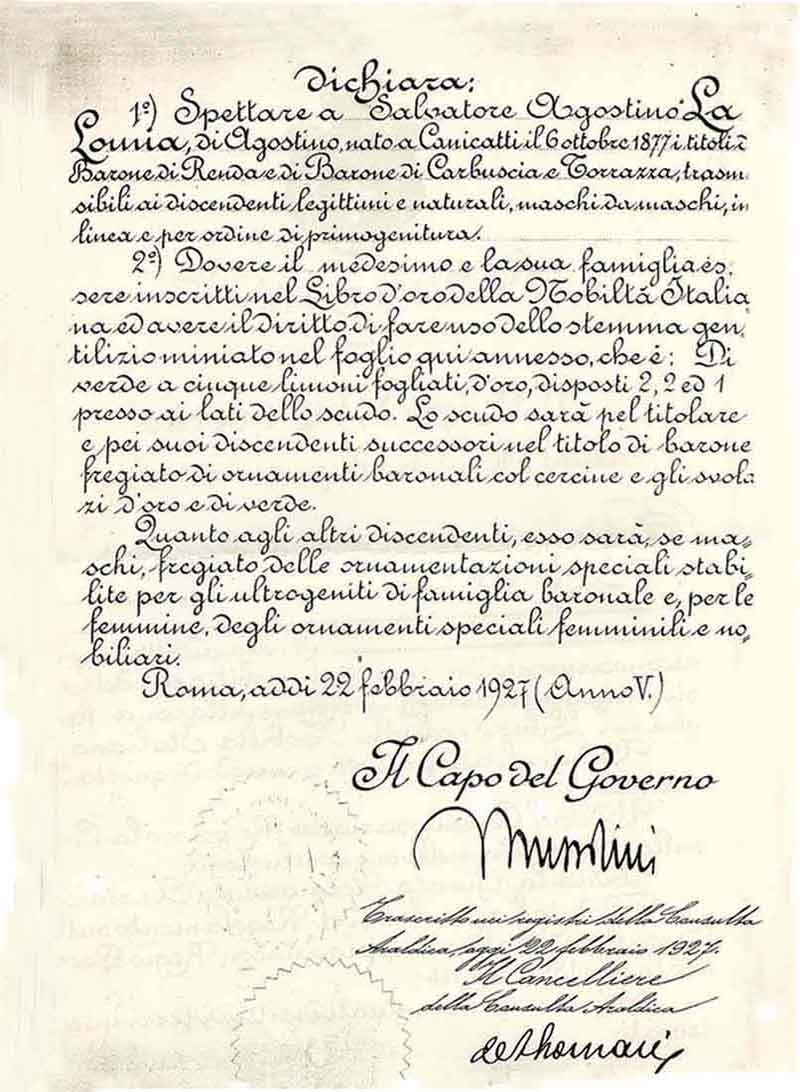 Dichiara:
1º) Spettare a Salvatore Agostino La
Lomia, di Agostino, nato a Canicattì il 6 ottobre 1877 i titoli di
Barone di Renda e di Barone di Carbuscia e Torrazza, trasmi
sibili ai discendenti legittimi e naturali, maschi da maschi, in
linea e per ordine di primogenitura.
2º) Dovere il medesimo e la sua famiglia es,
sere inscritti nel Libro d'oro della Nobiltà Italia
na ed avere il diritto di fare uso dello stemma gen,
tilizio miniato nel foglio qui annesso, che é: Di
verde a cinque limoni fogliati, d'oro, disposti 2, 2 ed 1
presso ai lati dello scudo. Lo scudo sarà pel titolare
e pei suoi discendenti successori nel titolo di barone
fregiato di ornamenti baronali col cercine e gli svola
zi d'oro e di verde.
Quanto agli altri discendenti, esso sarà, se ma„
schi, fregiato delle ornamentazioni speciali stabi„
lite per gli ultrogeniti di famiglia baronale e, per le
femmine, degli ornamenti speciali femminili e no„
biliari.
Roma, addì 22 febbraio 1927 (Anno V.)
Il Capo del Governo
Mussolini
Trascritto nei registri della Consulta
Araldica, oggi 22 febbraio 1927.
Il Cancelliere
della Consulta Araldica